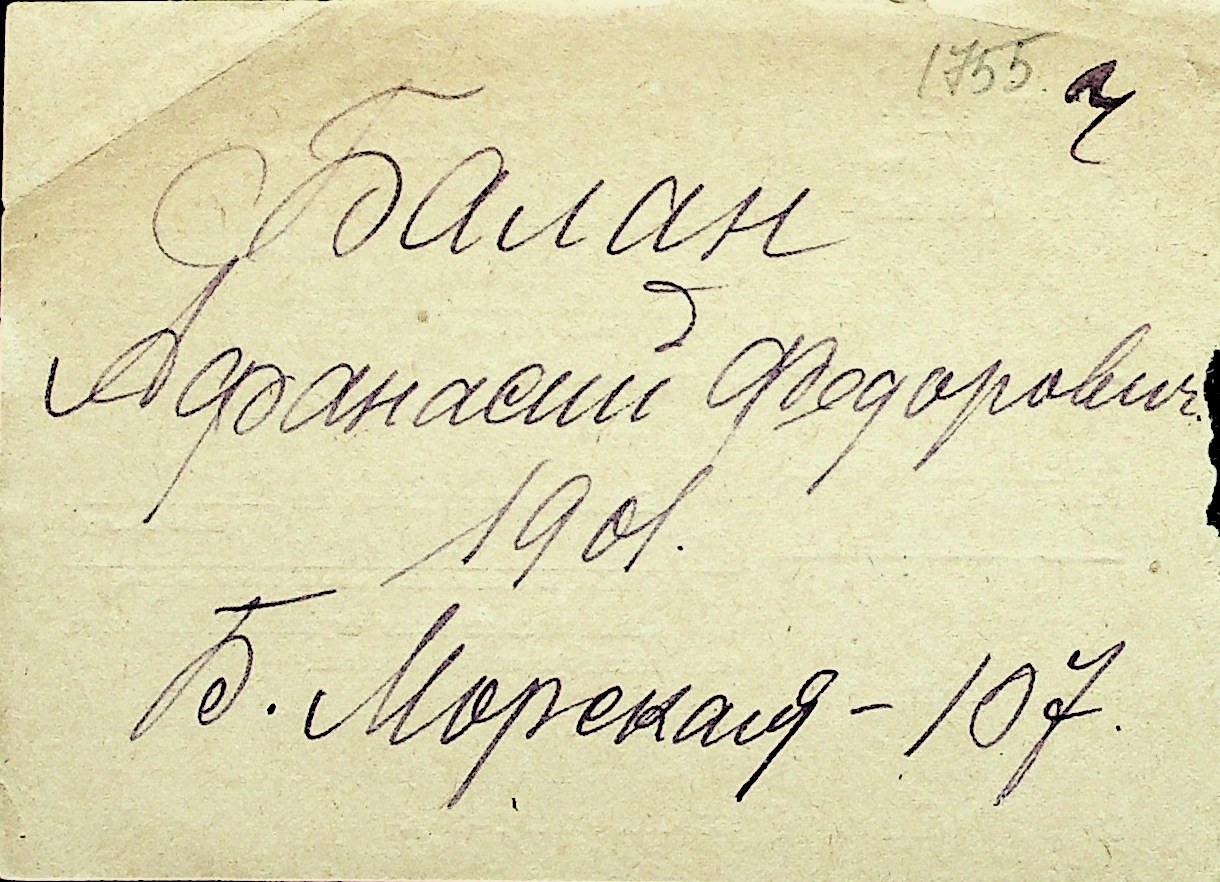 1755
Балан
Афанасий Федорович
1901.
Б. Морская - 107.